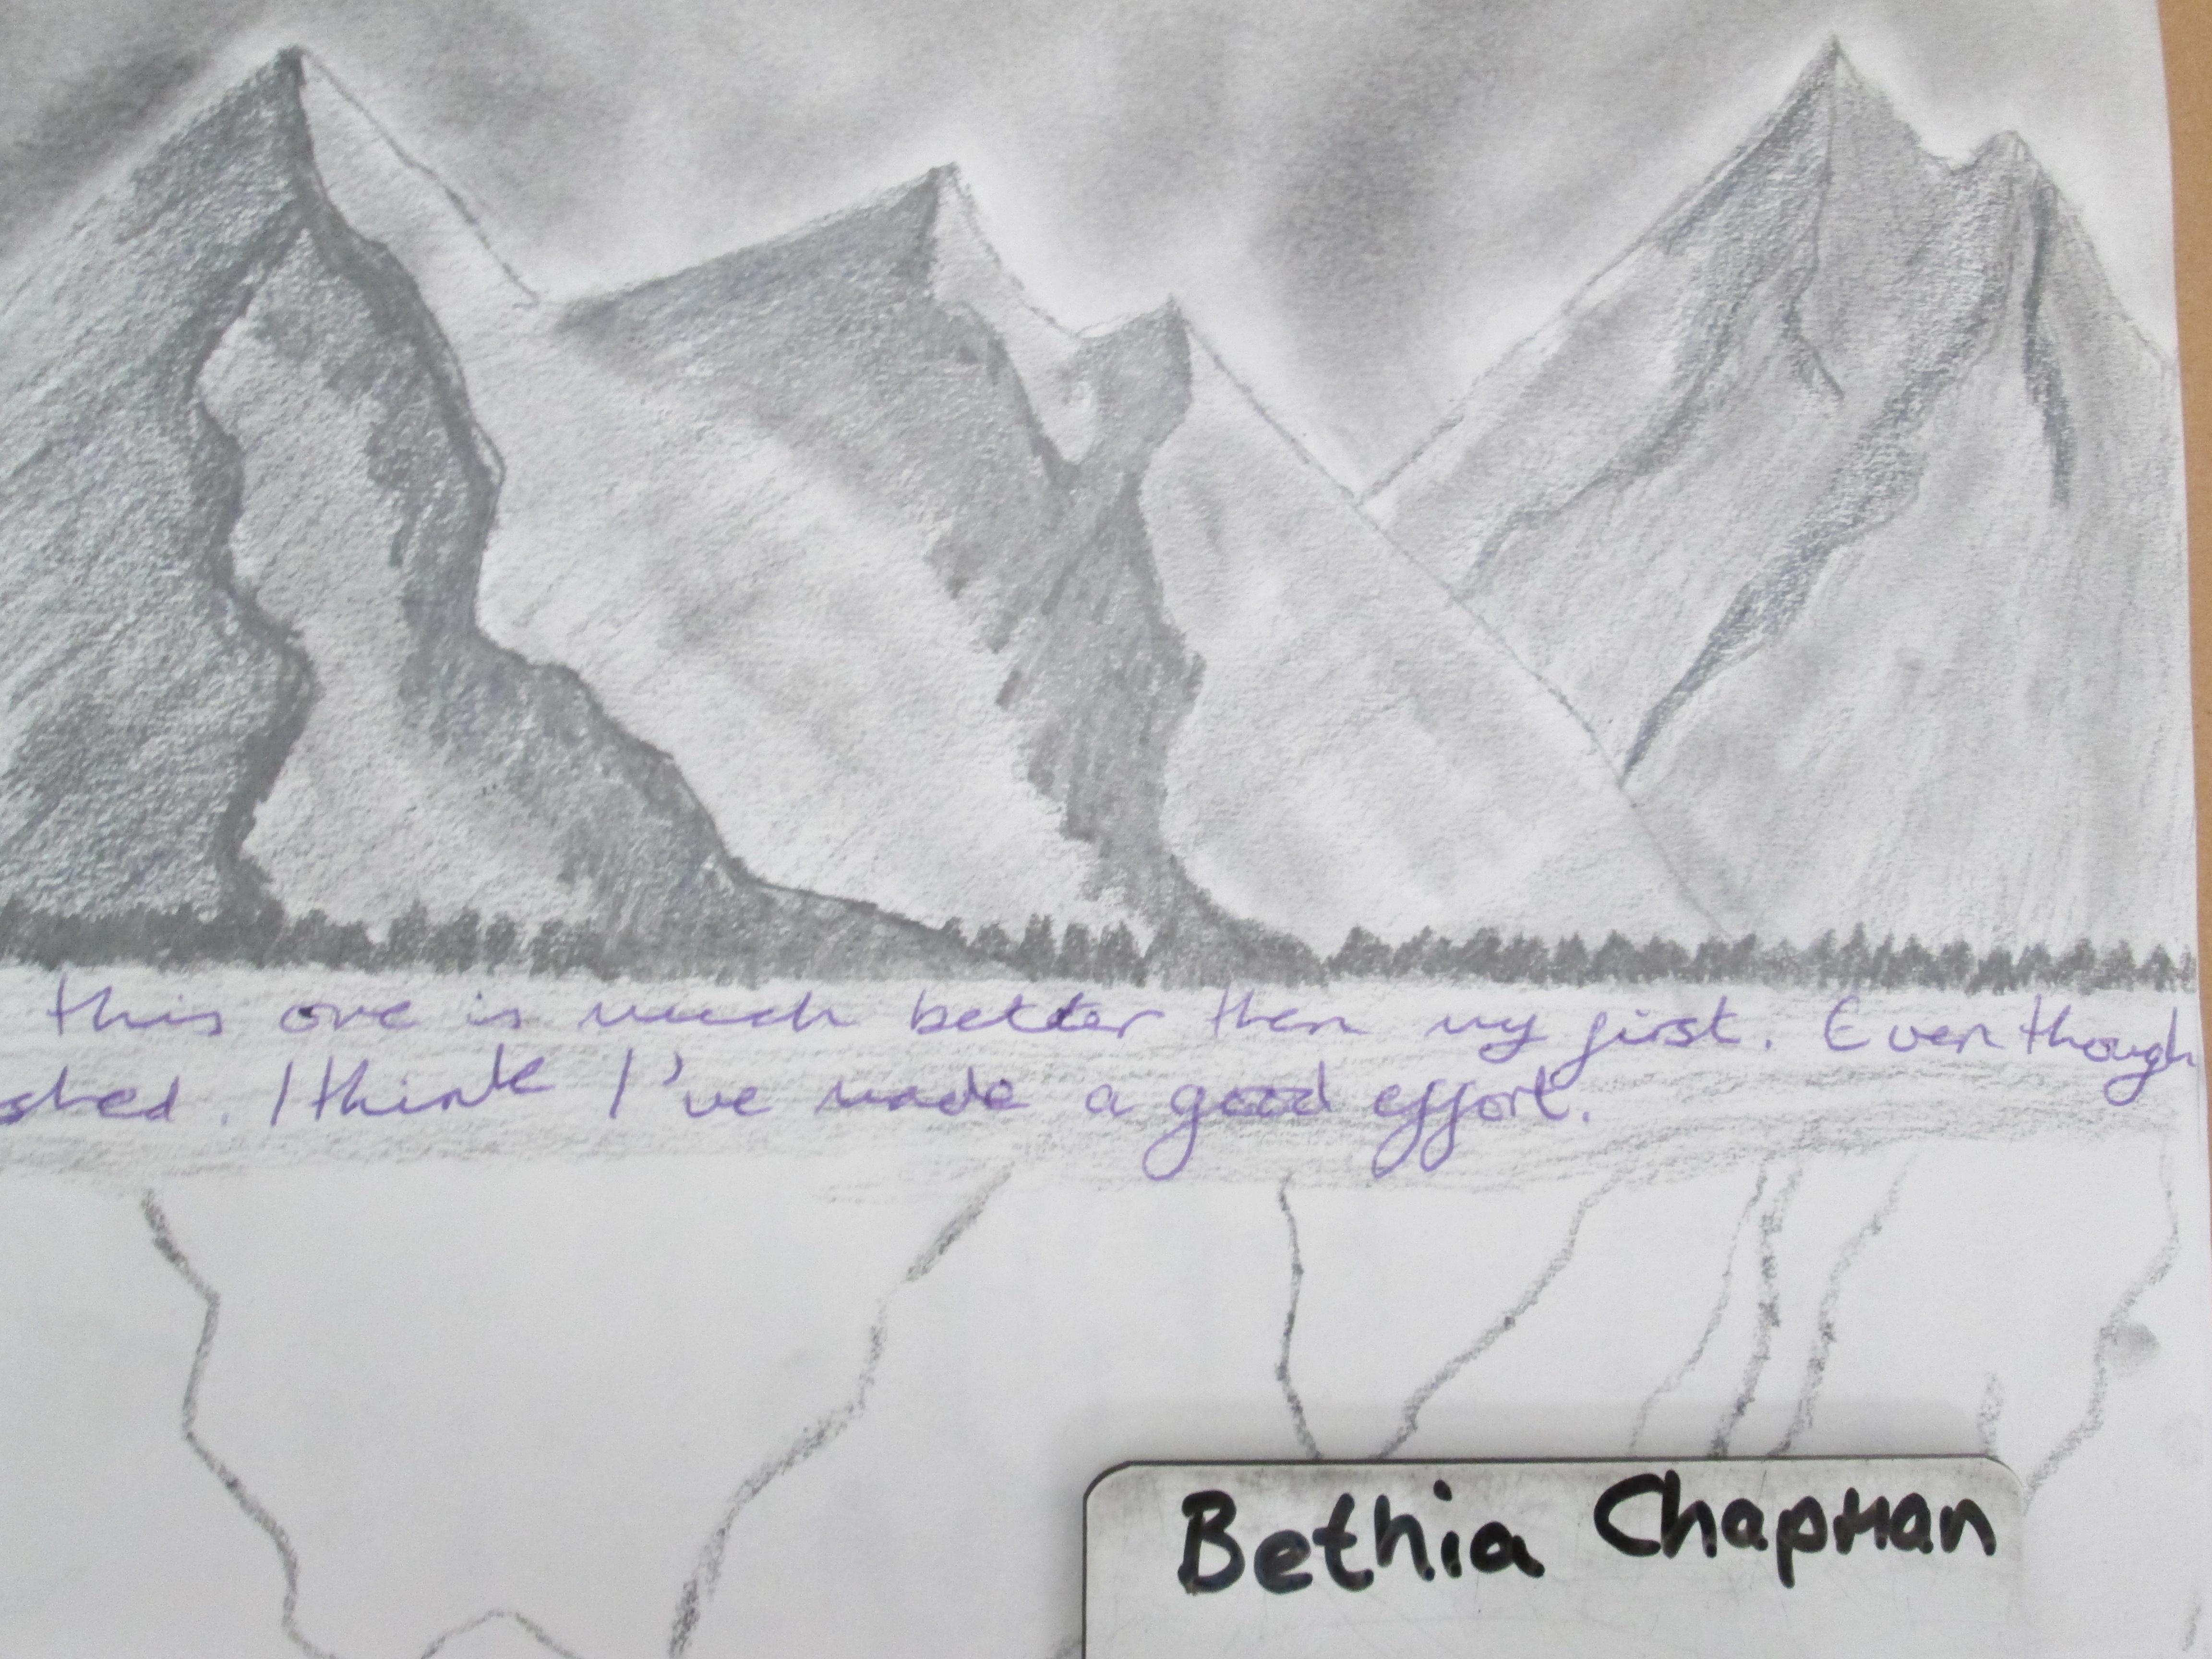 this one is much better then my first. Even though
shed. I think I've made a good effort.
Bethia Chapman